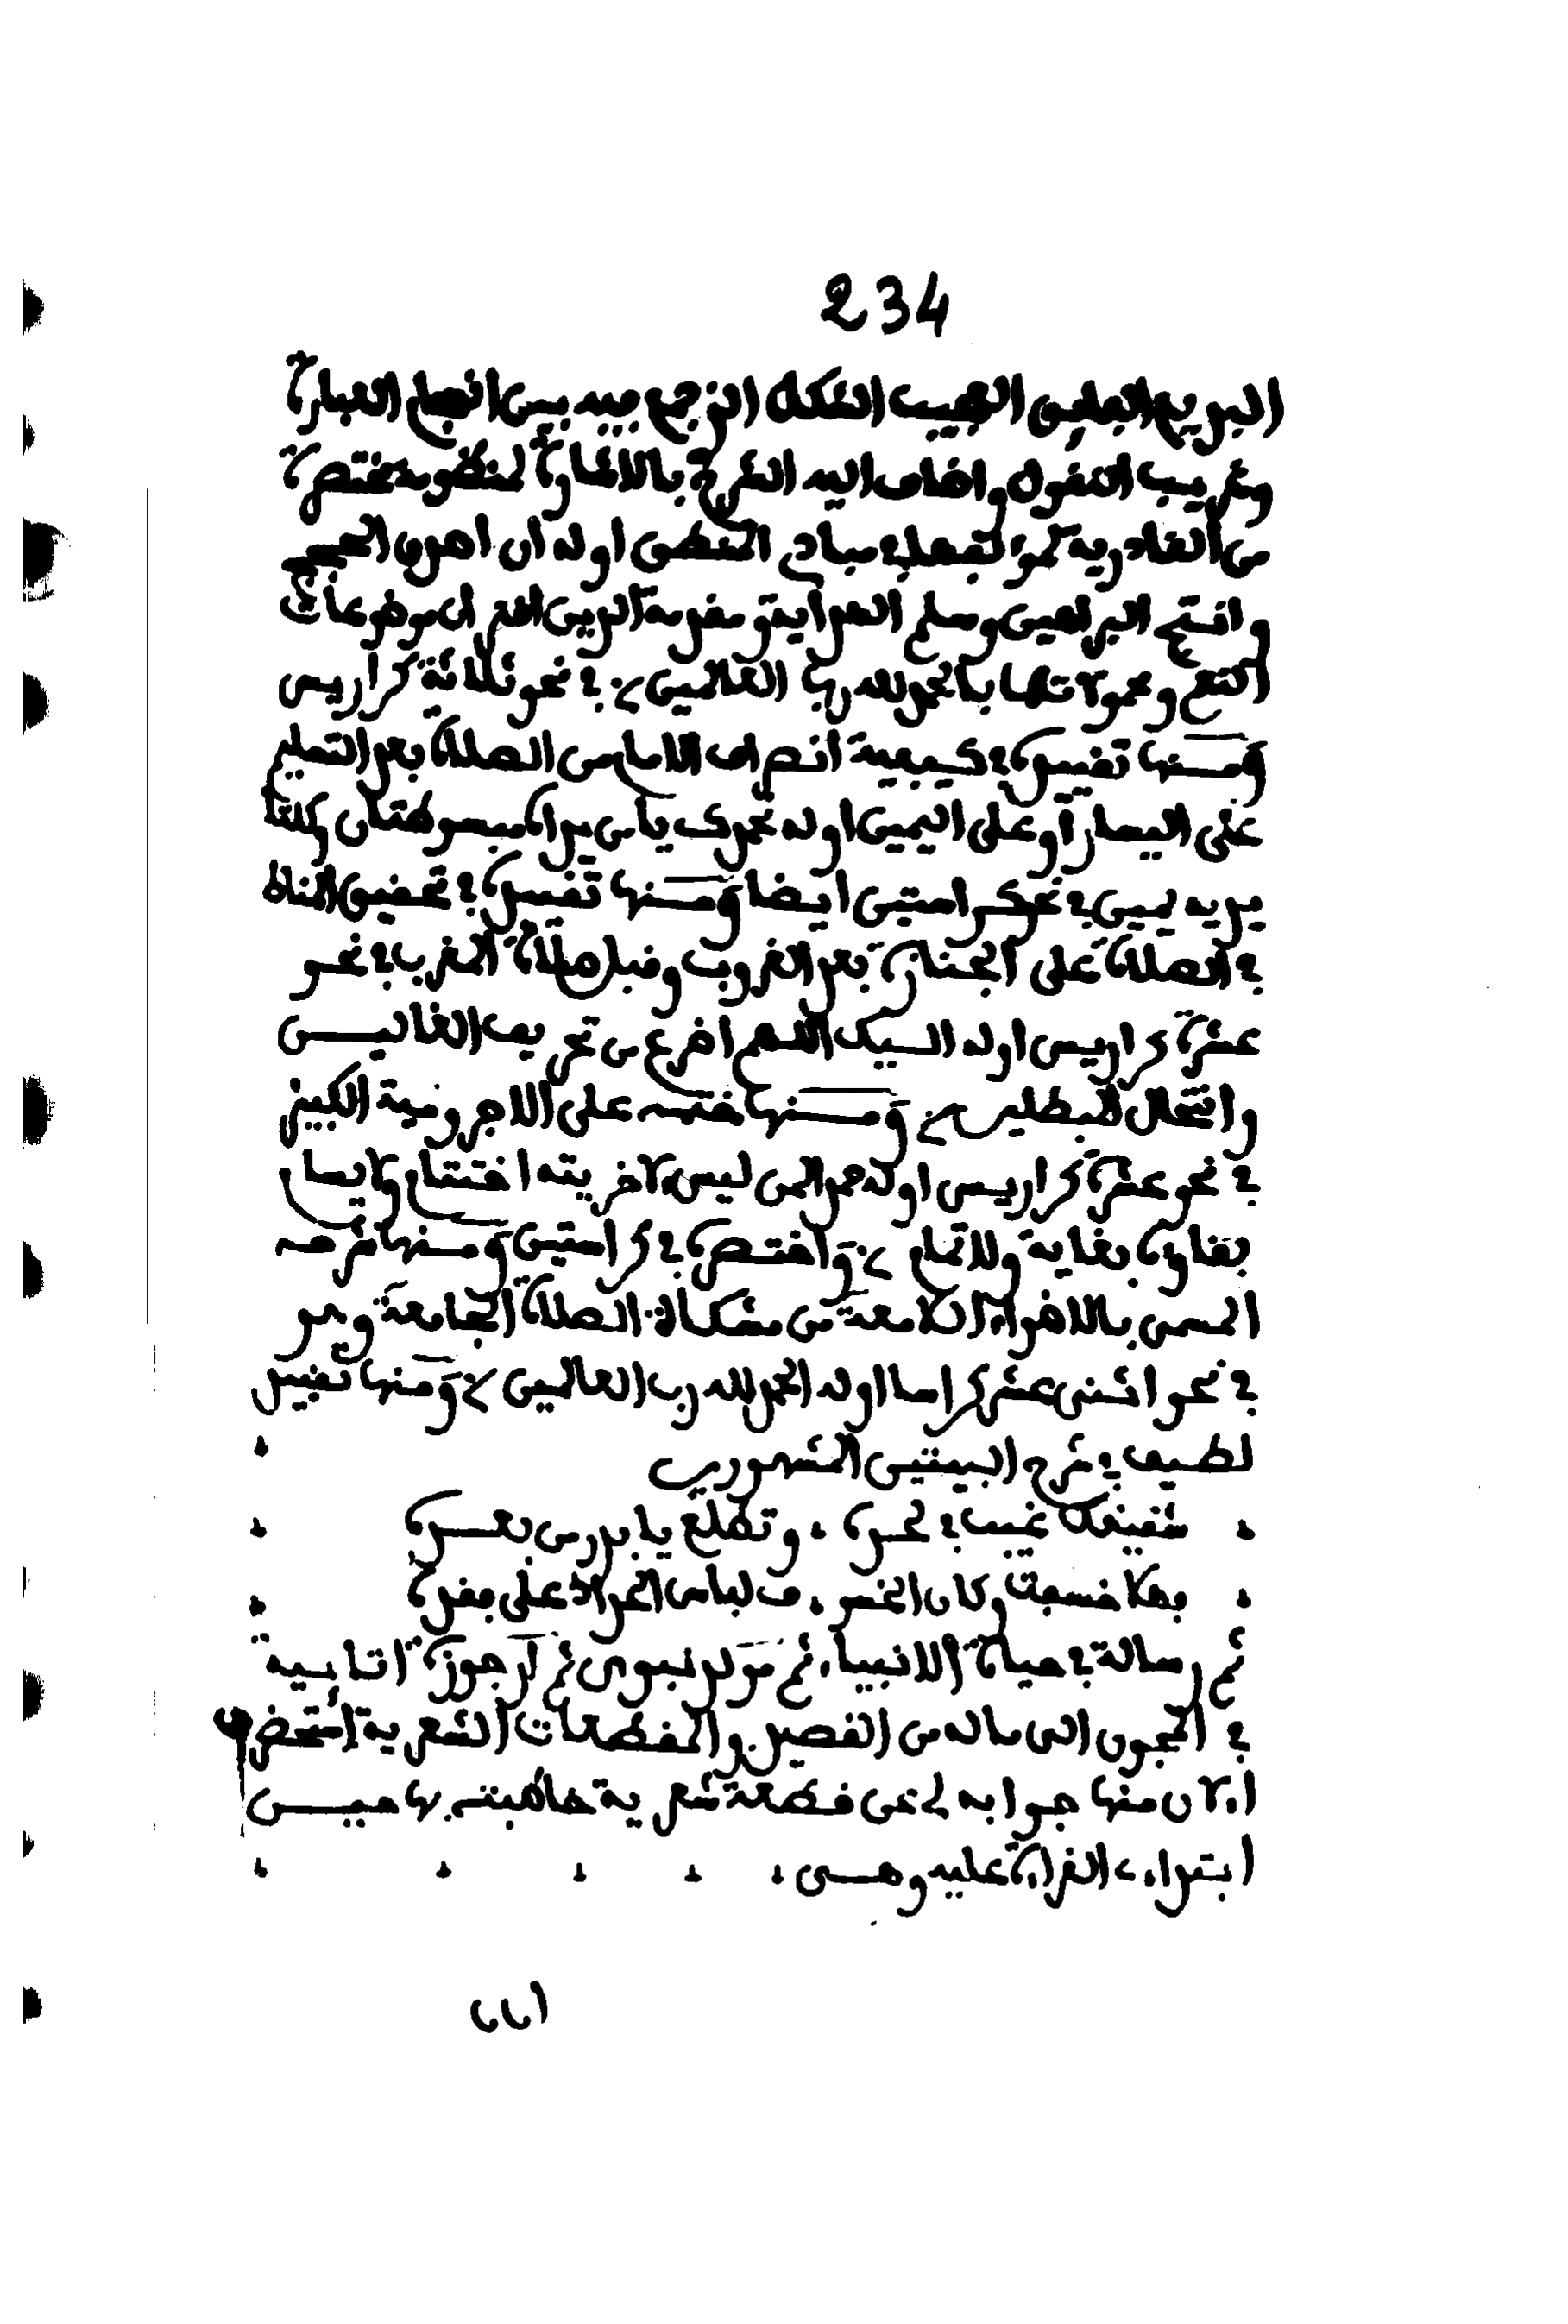 234
البديع الجليل العجيب الشكل الذي جمع فيه بين انسجام العبارة
وغريب النقول واضاف اليه الشرح بالالغاز لمنظومة مختصرة
من القادرية كمقدمة في مبادئ المنطق اوله ان اهدى الحجج
وانتج البراهين وسلم الهداية ومقدمة الدين الى موضوعات
النعم ومحمولاتها بالحمد لله رب العالمين في نحو ثلاثة كراريس
ومنها تقييد في كيفية انصراف الامام من الصلاة بعد التسليم
على اليسار او على اليمين اوله نحمدك يا من يداه مبسوطتان وكلتا
يديه يمين في نحو كراستين ايضا ومنها تقييد في تحقيق المناط
في الصلاة على الجنازة بعد الغروب وقبل صلاة المغرب في نحو
عشرة كراريس اوله اليك اللهم اضرع من تحريف الغاليين
وانتحال المبطلين ومنها ختمه على الاجرومية الكبير
في نحو عشرة كراريس اوله حمدا لمن ليس لاخريته اختتام ولا يسام
بقاؤه بغاية ولا تمام واختصره في كراستين ومنها شرحه
المسمى بالاضواء اللامعة من مشكاة الصلاة الجامعة وهو
في نحو اثنى عشر كراسا اوله الحمد لله رب العالمين ومنها تقييد
لطيف في شرح البيتين المشهورين
شقيقك غيب في لحده ، وتطلع يا بدر من بعده
فهلا خسفت وكان الخسوف لباس الحداد على فقده
ثم رسالة في حياة الانبياء ثم مولد نبوي ثم ارجوزة اتايية
في المجون الى ما له من القصيد والمقطعات الشعرية استحضر
الان منها جوابه لي عن قطعة شعرية خاطبته بها حين
ابتداء القراءة عليه وهي